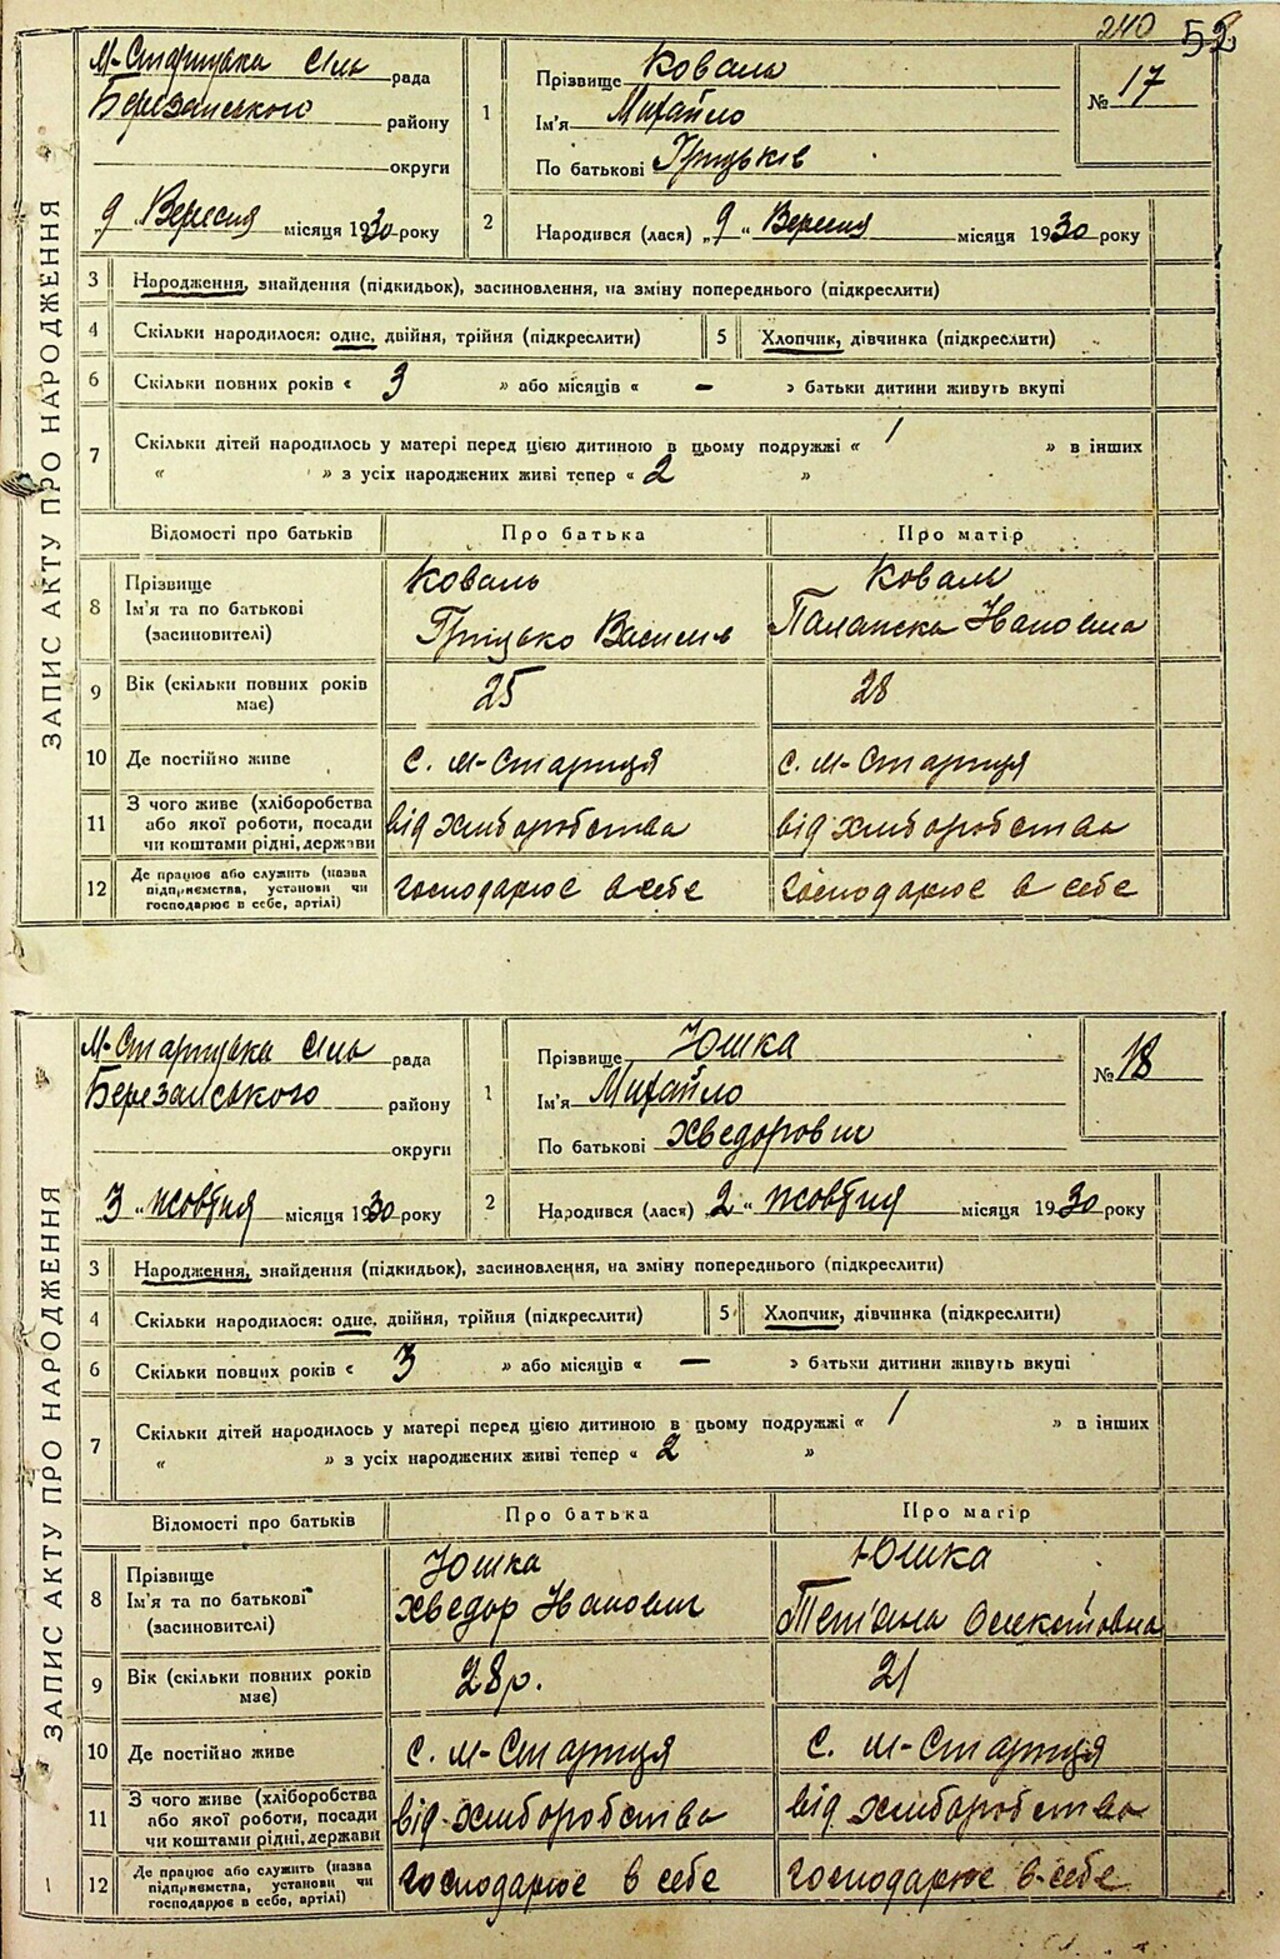 240 52
ЗАПИС АКТУ ПРО НАРОДЖЕННЯ
М-Старицька сіль рада
Березанського району
округи
„9“ Вересня місяця 1930 року
1
Прізвище Коваль
Ім'я Михайло
По батькові Грицьків
№ 17
2
Народився (лася) „9“ Вересня місяця 1930 року
3 Народження, знайдення (підкидьок), засиновлення, на зміну попереднього (підкреслити)
4 Скільки народилося: одне, двійня, трійня (підкреслити) 5 Хлопчик, дівчинка (підкреслити)
6 Скільки повних років « 3 » або місяців « – » батьки дитини живуть вкупі
7 Скільки дітей народилось у матері перед цією дитиною в цьому подружжі « 1 » в інших
« » з усіх народжених живі тепер « 2 »
Відомості про батьків Про батька Про матір
8 Прізвище
Ім'я та по батькові
(засиновителі)
Коваль
Грицько Василів
Коваль
Палажка Івановна
9 Вік (скільки повних років
має)
25 28
10 Де постійно живе с. М-Стариця с. М-Стариця
11 З чого живе (хліборобства
або якої роботи, посади
чи коштами рідні, держави
від хліборобства від хліборобства
12 Де працює або служить (назва
підприємства, установи чи
господарює в себе, артілі)
господарює в себе господарює в себе
ЗАПИС АКТУ ПРО НАРОДЖЕННЯ
М-Старицька сіль рада
Березанського району
округи
„3“ жовтня місяця 1930 року
1
Прізвище Юшка
Ім'я Михайло
По батькові Хведорович
№ 18
2
Народився (лася) „2“ жовтня місяця 1930 року
3 Народження, знайдення (підкидьок), засиновлення, на зміну попереднього (підкреслити)
4 Скільки народилося: одне, двійня, трійня (підкреслити) 5 Хлопчик, дівчинка (підкреслити)
6 Скільки повних років « 3 » або місяців « – » батьки дитини живуть вкупі
7 Скільки дітей народилось у матері перед цією дитиною в цьому подружжі « 1 » в інших
« » з усіх народжених живі тепер « 2 »
Відомості про батьків Про батька Про матір
8 Прізвище
Ім'я та по батькові
(засиновителі)
Юшка
Хведор Іванович
Юшка
Тет'яна
9 Вік (скільки повних років
має)
28 р. 21
10 Де постійно живе с. М-Стариця с. М-Стариця
11 З чого живе (хліборобства
або якої роботи, посади
чи коштами рідні, держави
від хліборобства від хліборобства
12 Де працює або служить (назва
підприємства, установи чи
господарює в себе, артілі)
господарює в себе господарює в себе